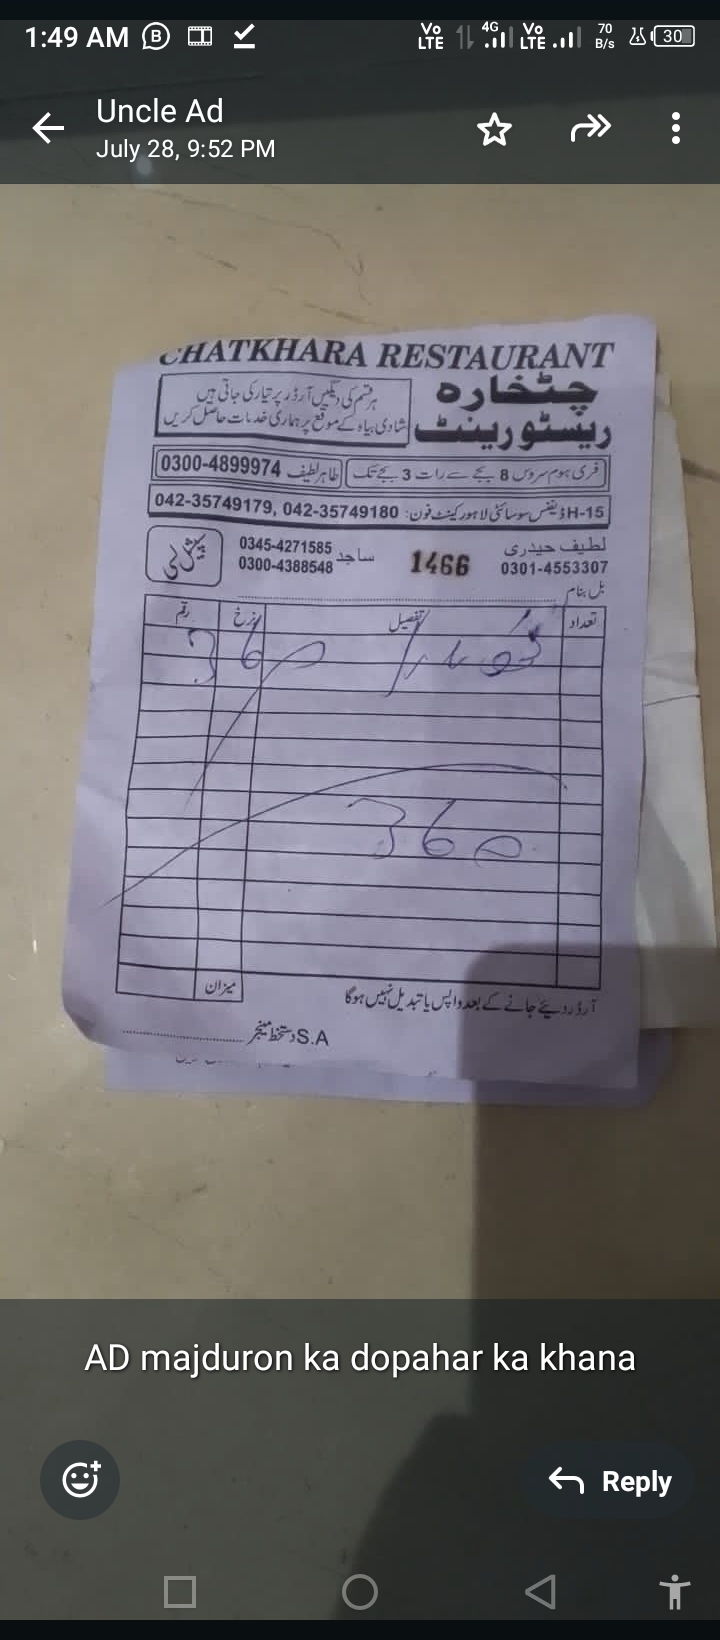 1:49 AM
Vo LTE 4G Vo LTE 70 B/s 30
Uncle Ad
July 28, 9:52 PM
CHATKHARA RESTAURANT
چٹخارہ
ریسٹورینٹ
ہر قسم کی دیگیں آرڈر پر تیار کی جاتی ہیں
شادی بیاہ کے موقع پر ہماری خدمات حاصل کریں
فری ہوم سروس 8 بجے سے رات 3 بجے تک
طاہر لطیف 0300-4899974
H-15 ڈیفنس سوسائٹی لاہور کینٹ فون: 042-35749179, 042-35749180
لطیف حیدری
0301-4553307
1466
ساجد
0345-4271585
0300-4388548
بل بنام
تعداد تفصیل نرخ رقم
360
360
میزان
آرڈر دیئے جانے کے بعد واپس یا تبدیل نہیں ہوگا
S.A دستخط مینجر
AD majduron ka dopahar ka khana
Reply